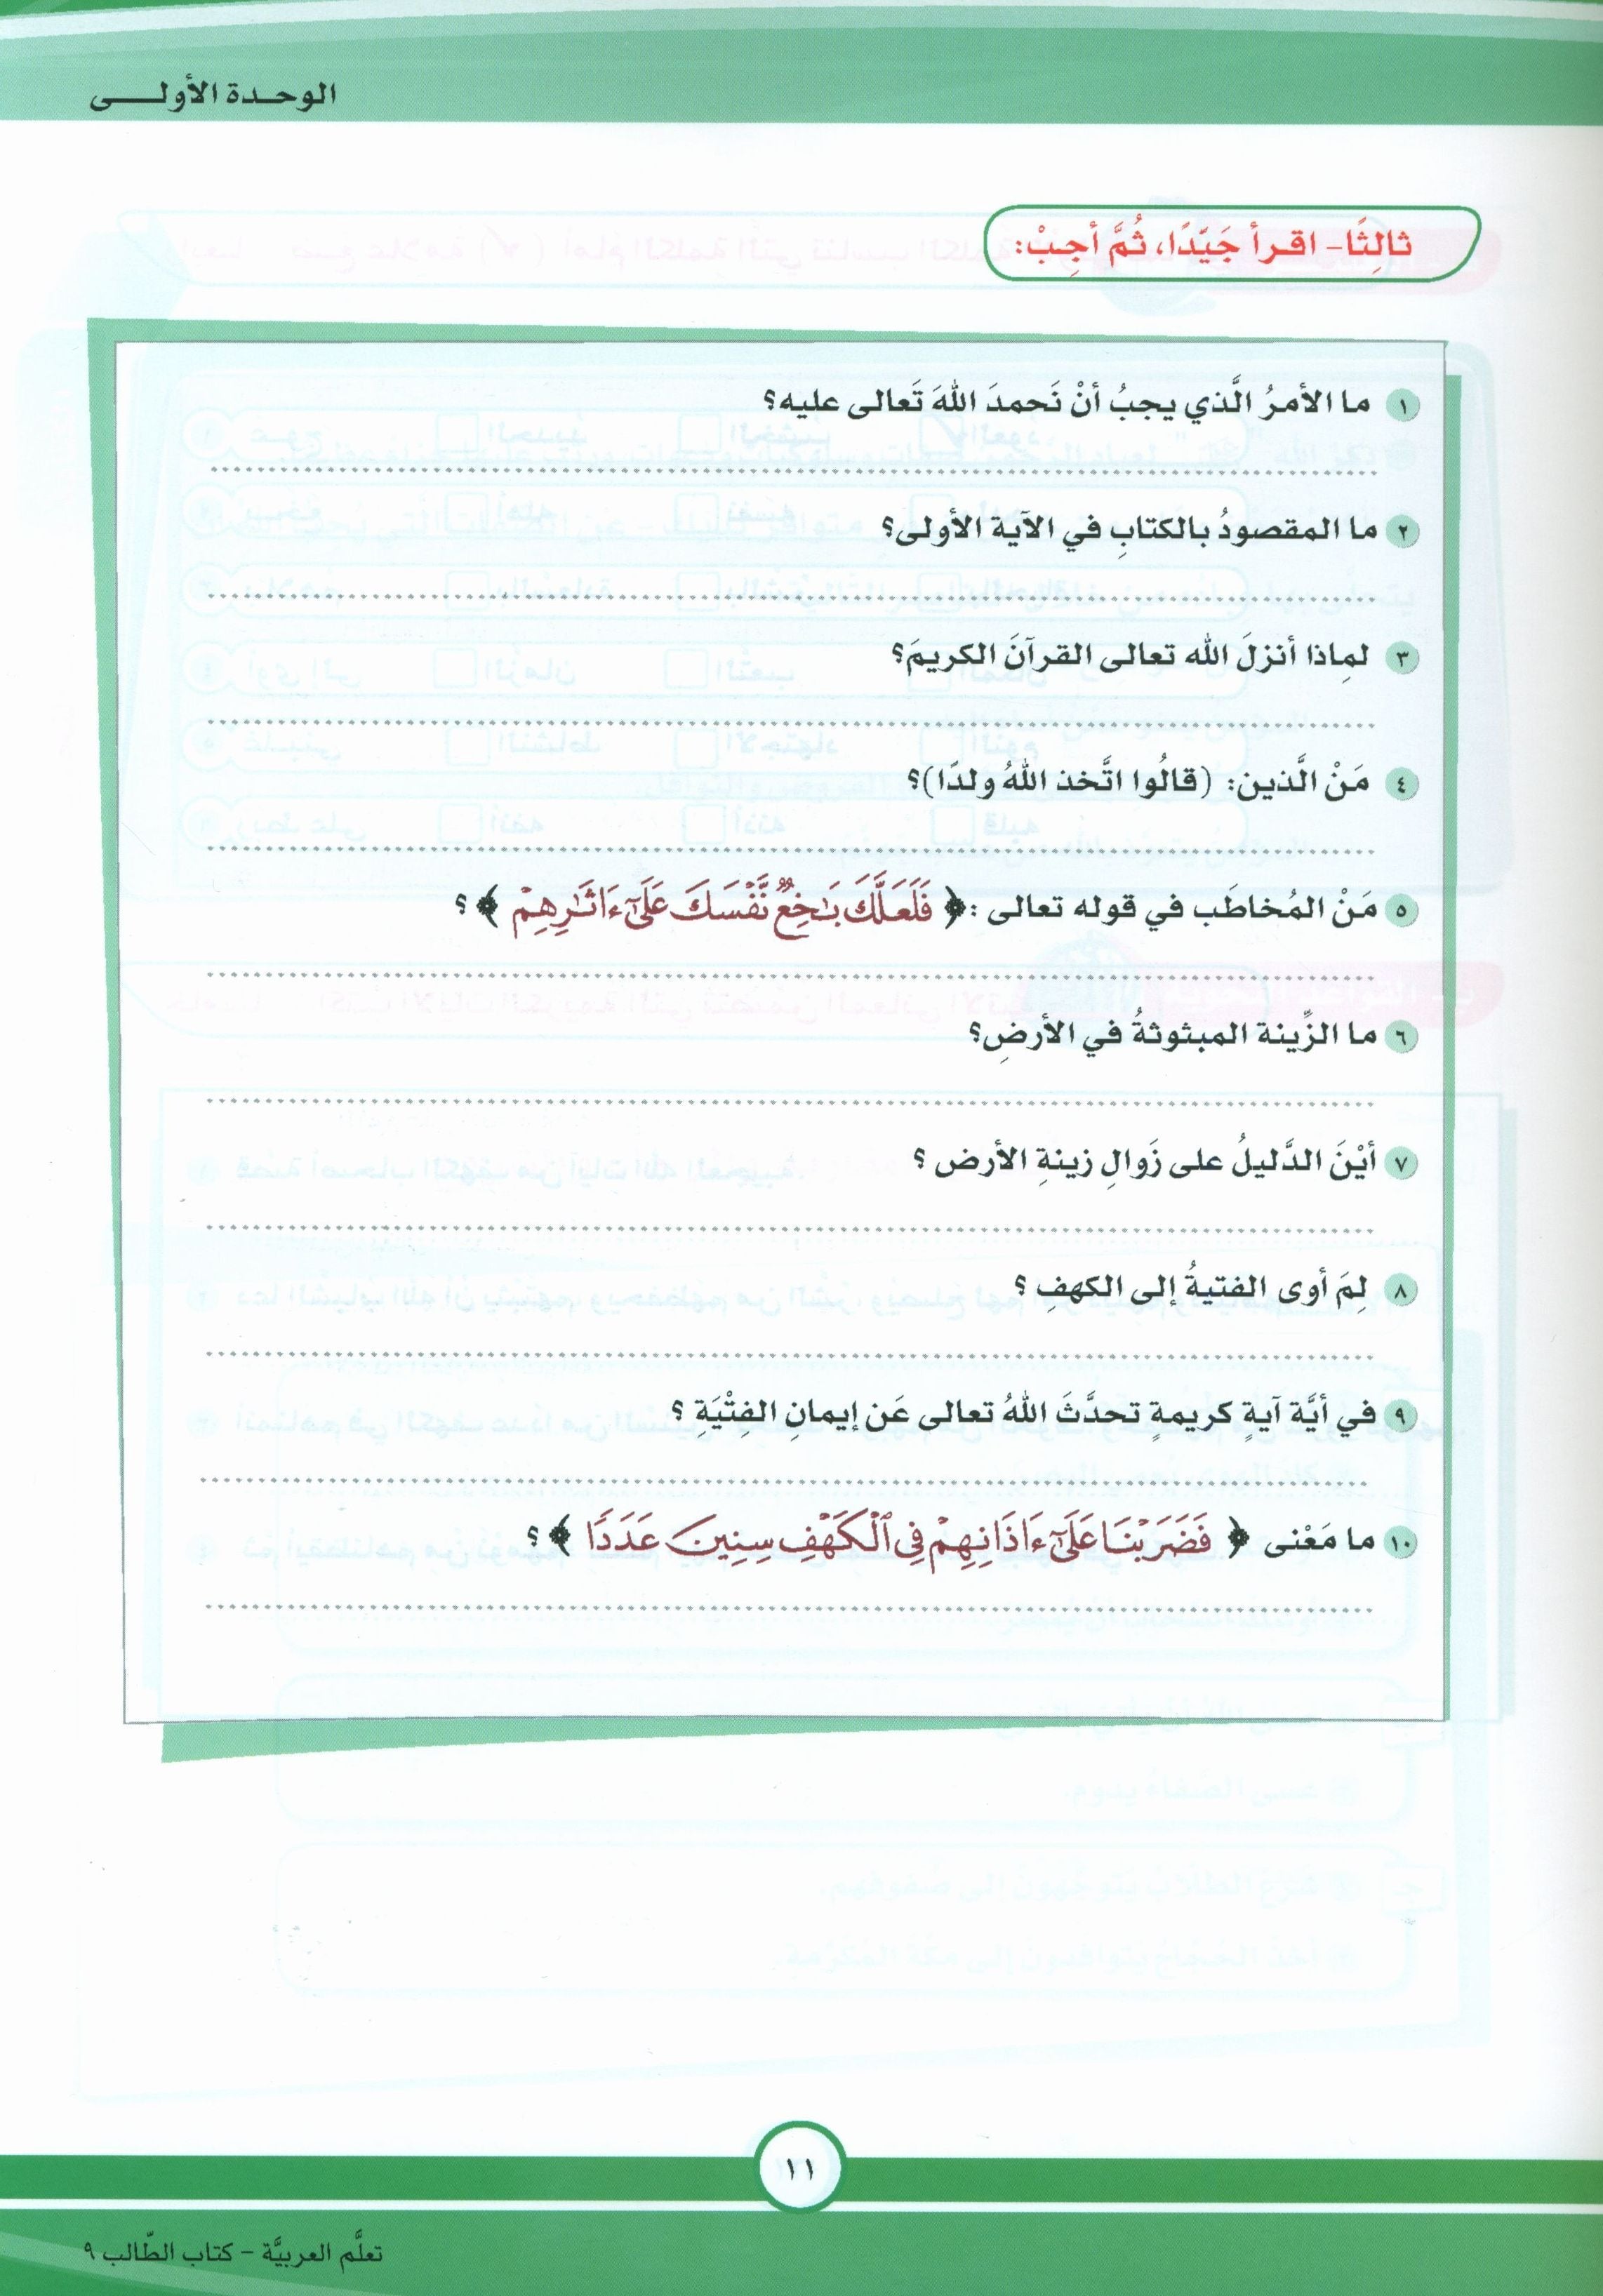 الوحدة الأولى
ثالِثًا- اقرأ جَيّدًا، ثُمَّ أجِبْ:
١ ما الأمرُ الَّذي يجبُ أنْ نَحمدَ اللهَ تَعالى عليه؟
٢ ما المقصودُ بالكتابِ في الآية الأولى؟
٣ لمِاذا أنزلَ الله تعالى القرآنَ الكريمَ؟
٤ مَنْ الَّذين: (قالُوا اتَّخذ اللهُ ولدًا)؟
٥ مَنْ المُخاطَب في قوله تعالى: ﴿ فَلَعَلَّكَ بَٰخِعٌ نَّفْسَكَ عَلَىٰٓ ءَاثَٰرِهِمْ ﴾ ؟
٦ ما الزِّينة المبثوثةُ في الأرضِ؟
٧ أيْنَ الدَّليلُ على زَوالِ زينةِ الأرض ؟
٨ لِمَ أوى الفتيةُ إلى الكهفِ ؟
٩ في أيَّة آيةٍ كريمةٍ تحدَّثَ اللهُ تعالى عَن إيمانِ الفِتْيَةِ ؟
١٠ ما مَعْنى ﴿ فَضَرَبْنَا عَلَىٰٓ ءَاذَانِهِمْ فِى ٱلْكَهْفِ سِنِينَ عَدَدًا ﴾ ؟
١١
تعلَّم العربيَّة - كتاب الطّالب ٩